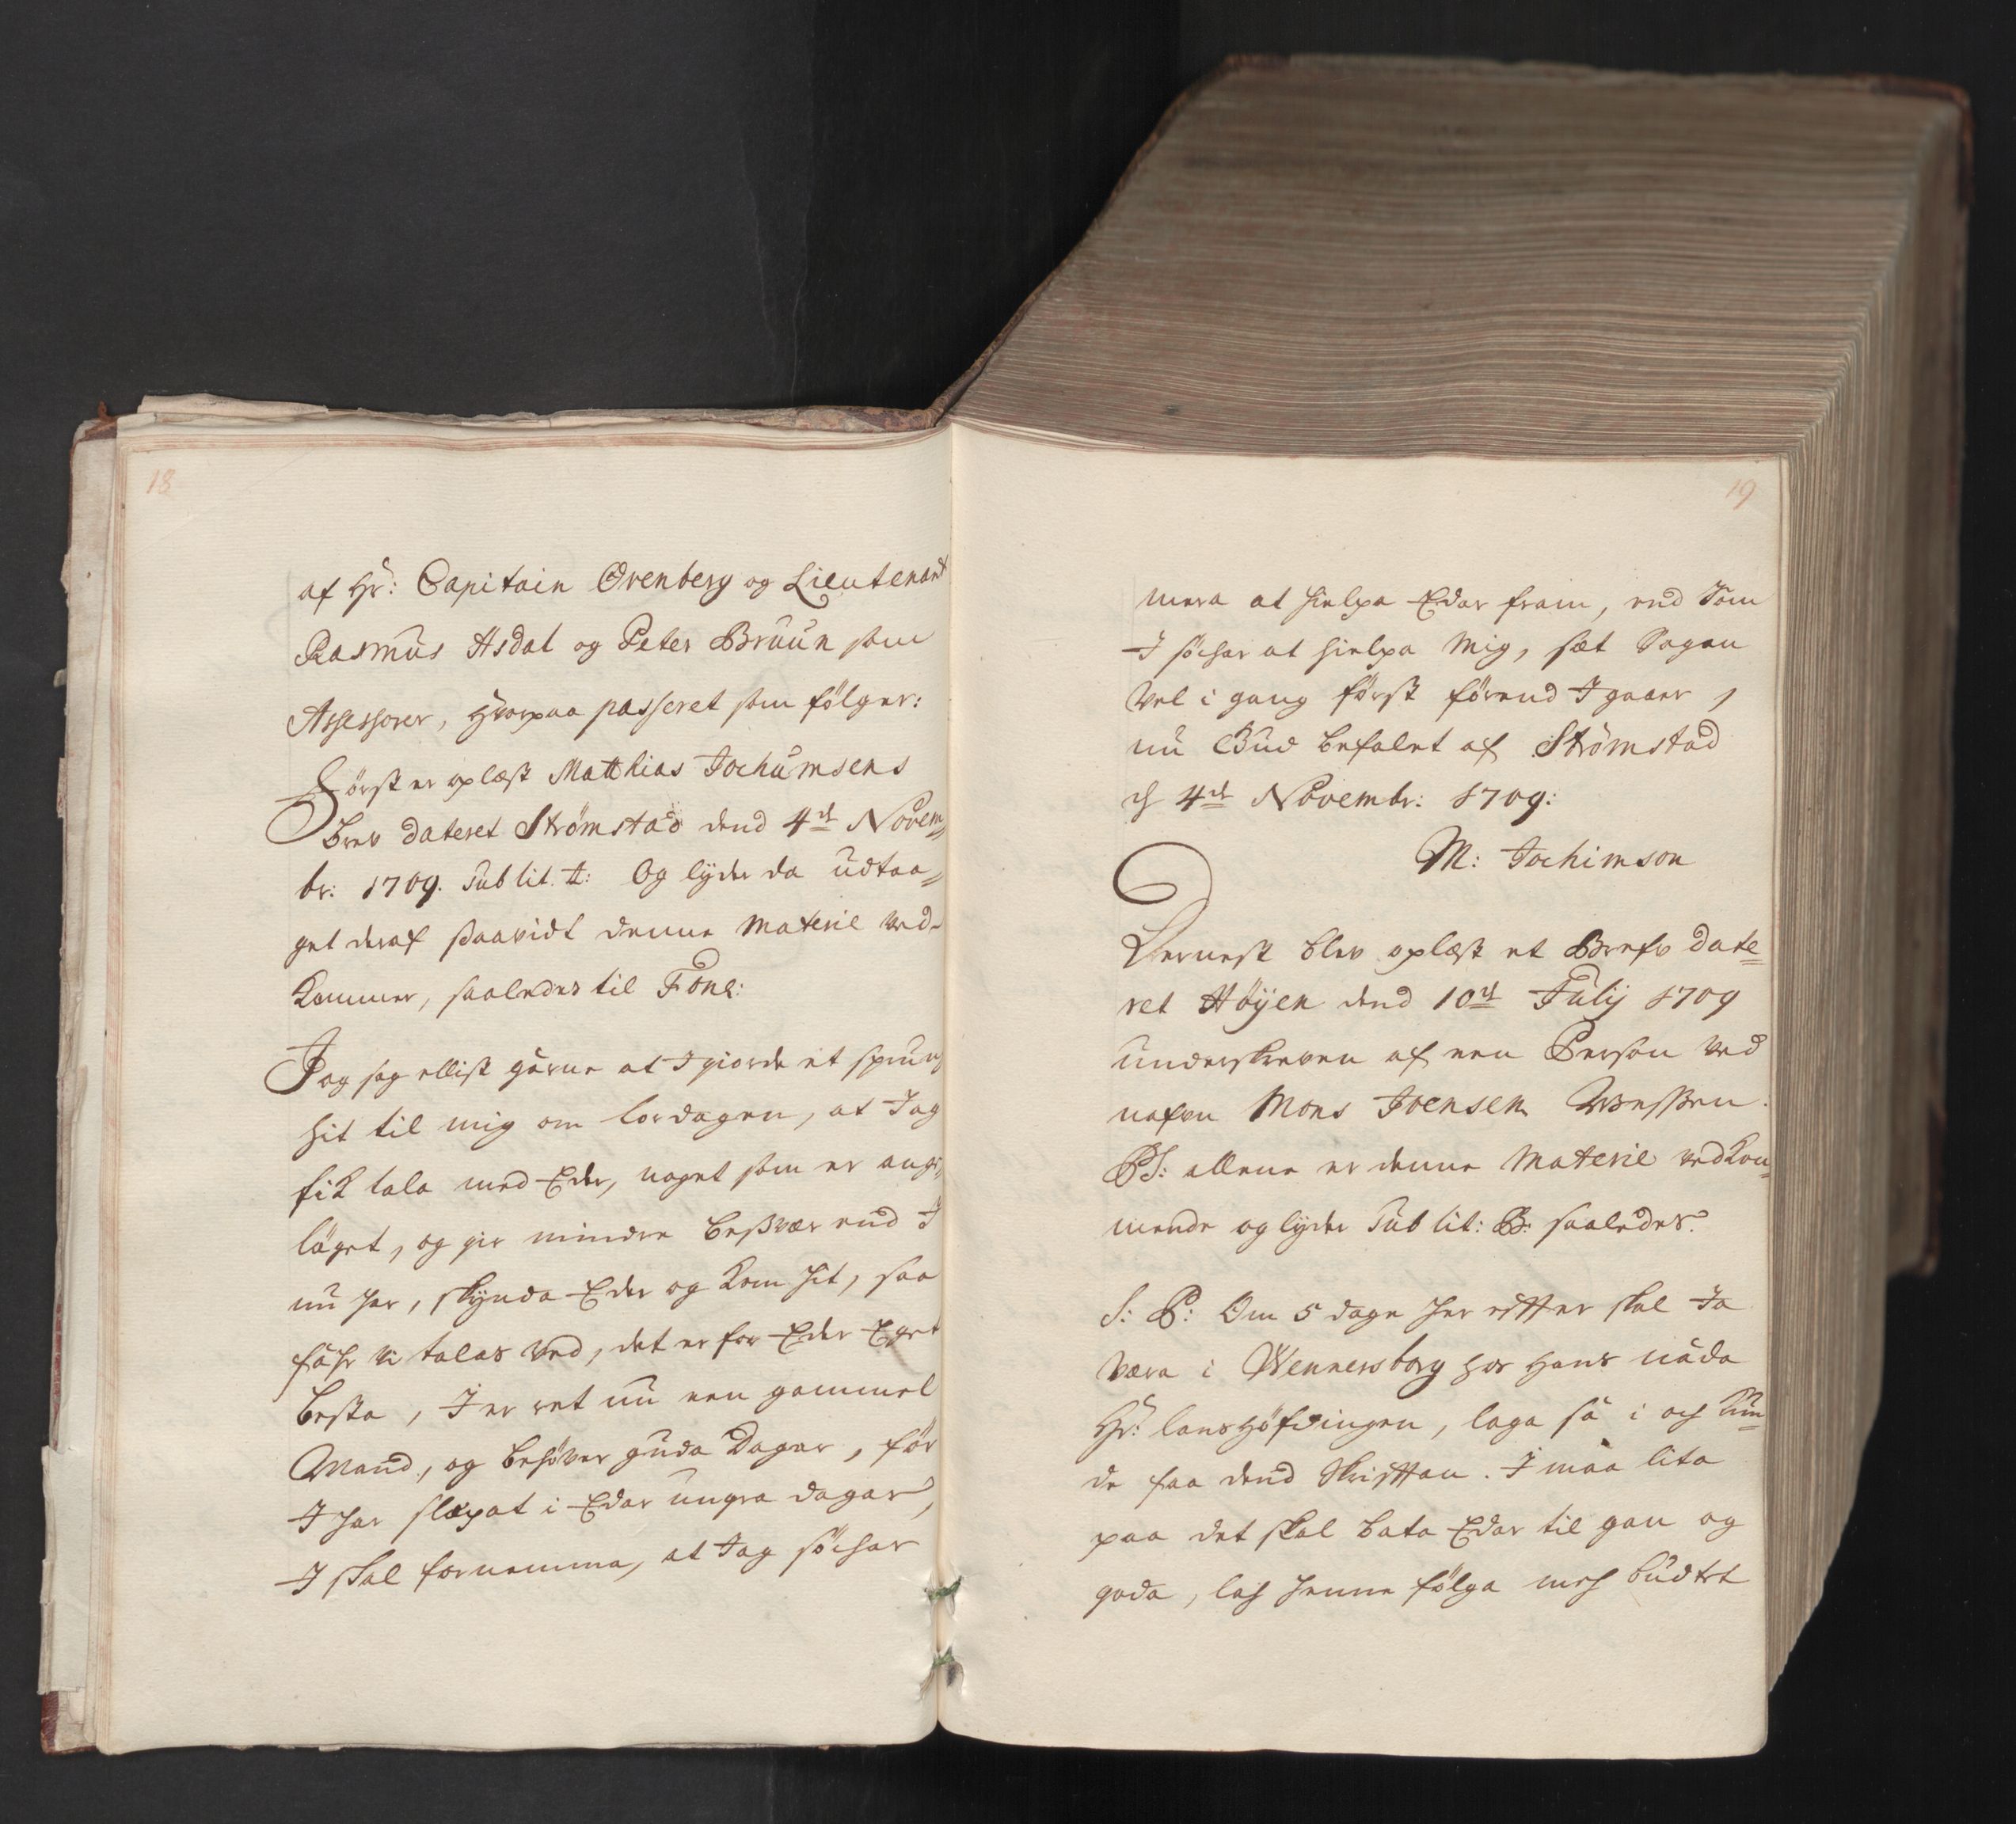 18
af Hr: Capitain Ovenberg og Lieutenant
Rasmus Asdal og Peter Bruun som
Assessorer, hvorpaa passeret som fölger:
Först er oplæst Matthias Jochumsens
brev dateret Strömstad dend 4de Novem=
br: 1709. Sub lit. A: Og lyder da udtaa=
get deraf saavidt denne Materie ved-
kommer, saaledes til Fone:
Jag sog ellist gärne at I giorde et sprung
hit til mig om lordagen, at Jag
fik tala med Eder, noget som er ange-
läget, og gir mindre besvær end I
nu har, skynda Eder og kom hit, saa
fåhr vi talas ved, det er for Eder Eget
besta, I er ret nu een gammel
Mand, og behöver guda Dagar, för
I har slæpat i Edar ungra dagar,
I skal fornemma, at Jag söchar
19
mera at hielpa Edar fram, end som
I söchar at hielpa Mig, sæt Sagen
vel i gang först förend I gaaer,
nu Gud befalet af Strömstad
d 4de Novembr: 1709:
M: Jochimson
Dernest blev oplæst et Brefv date=
ret Höyen dend 10de Julij 1709
underskreven af een Person ved
nafvn Mons Joensen Wessen.
PS: allene er denne Materie vedkom=
mende og lyder Sub lit: B: saaledes:
S: P: Om 5 dage her efter skal Ja
væra i Wennersborg hos Hans nåda
Hr: lanshöfdingen, laga så i och kun=
de faa dend Skriften. I maa lita
paa det skal bata Edar til gan og
goda, lah henne fölga meh budet